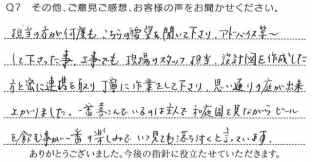 Q7 その他、ご意見ご感想、お客様の声をお聞かせください。
担当の方が何度もこちらの要望を聞いて下り、アドバイス等々
して下さった事、工事でも、現場のスタッフ、担当、設計図を作成した
方と密に連携を取り丁寧に作業をして下り、思い通りの庭が出来
上がりました。一番喜こんでいるのは主人で和庭園を見ながらビール
を飲む事が一番の楽しみでいつ見ても落ち付くと言っています。
ありがとうございました。今後の指針に役立たせていただきます。